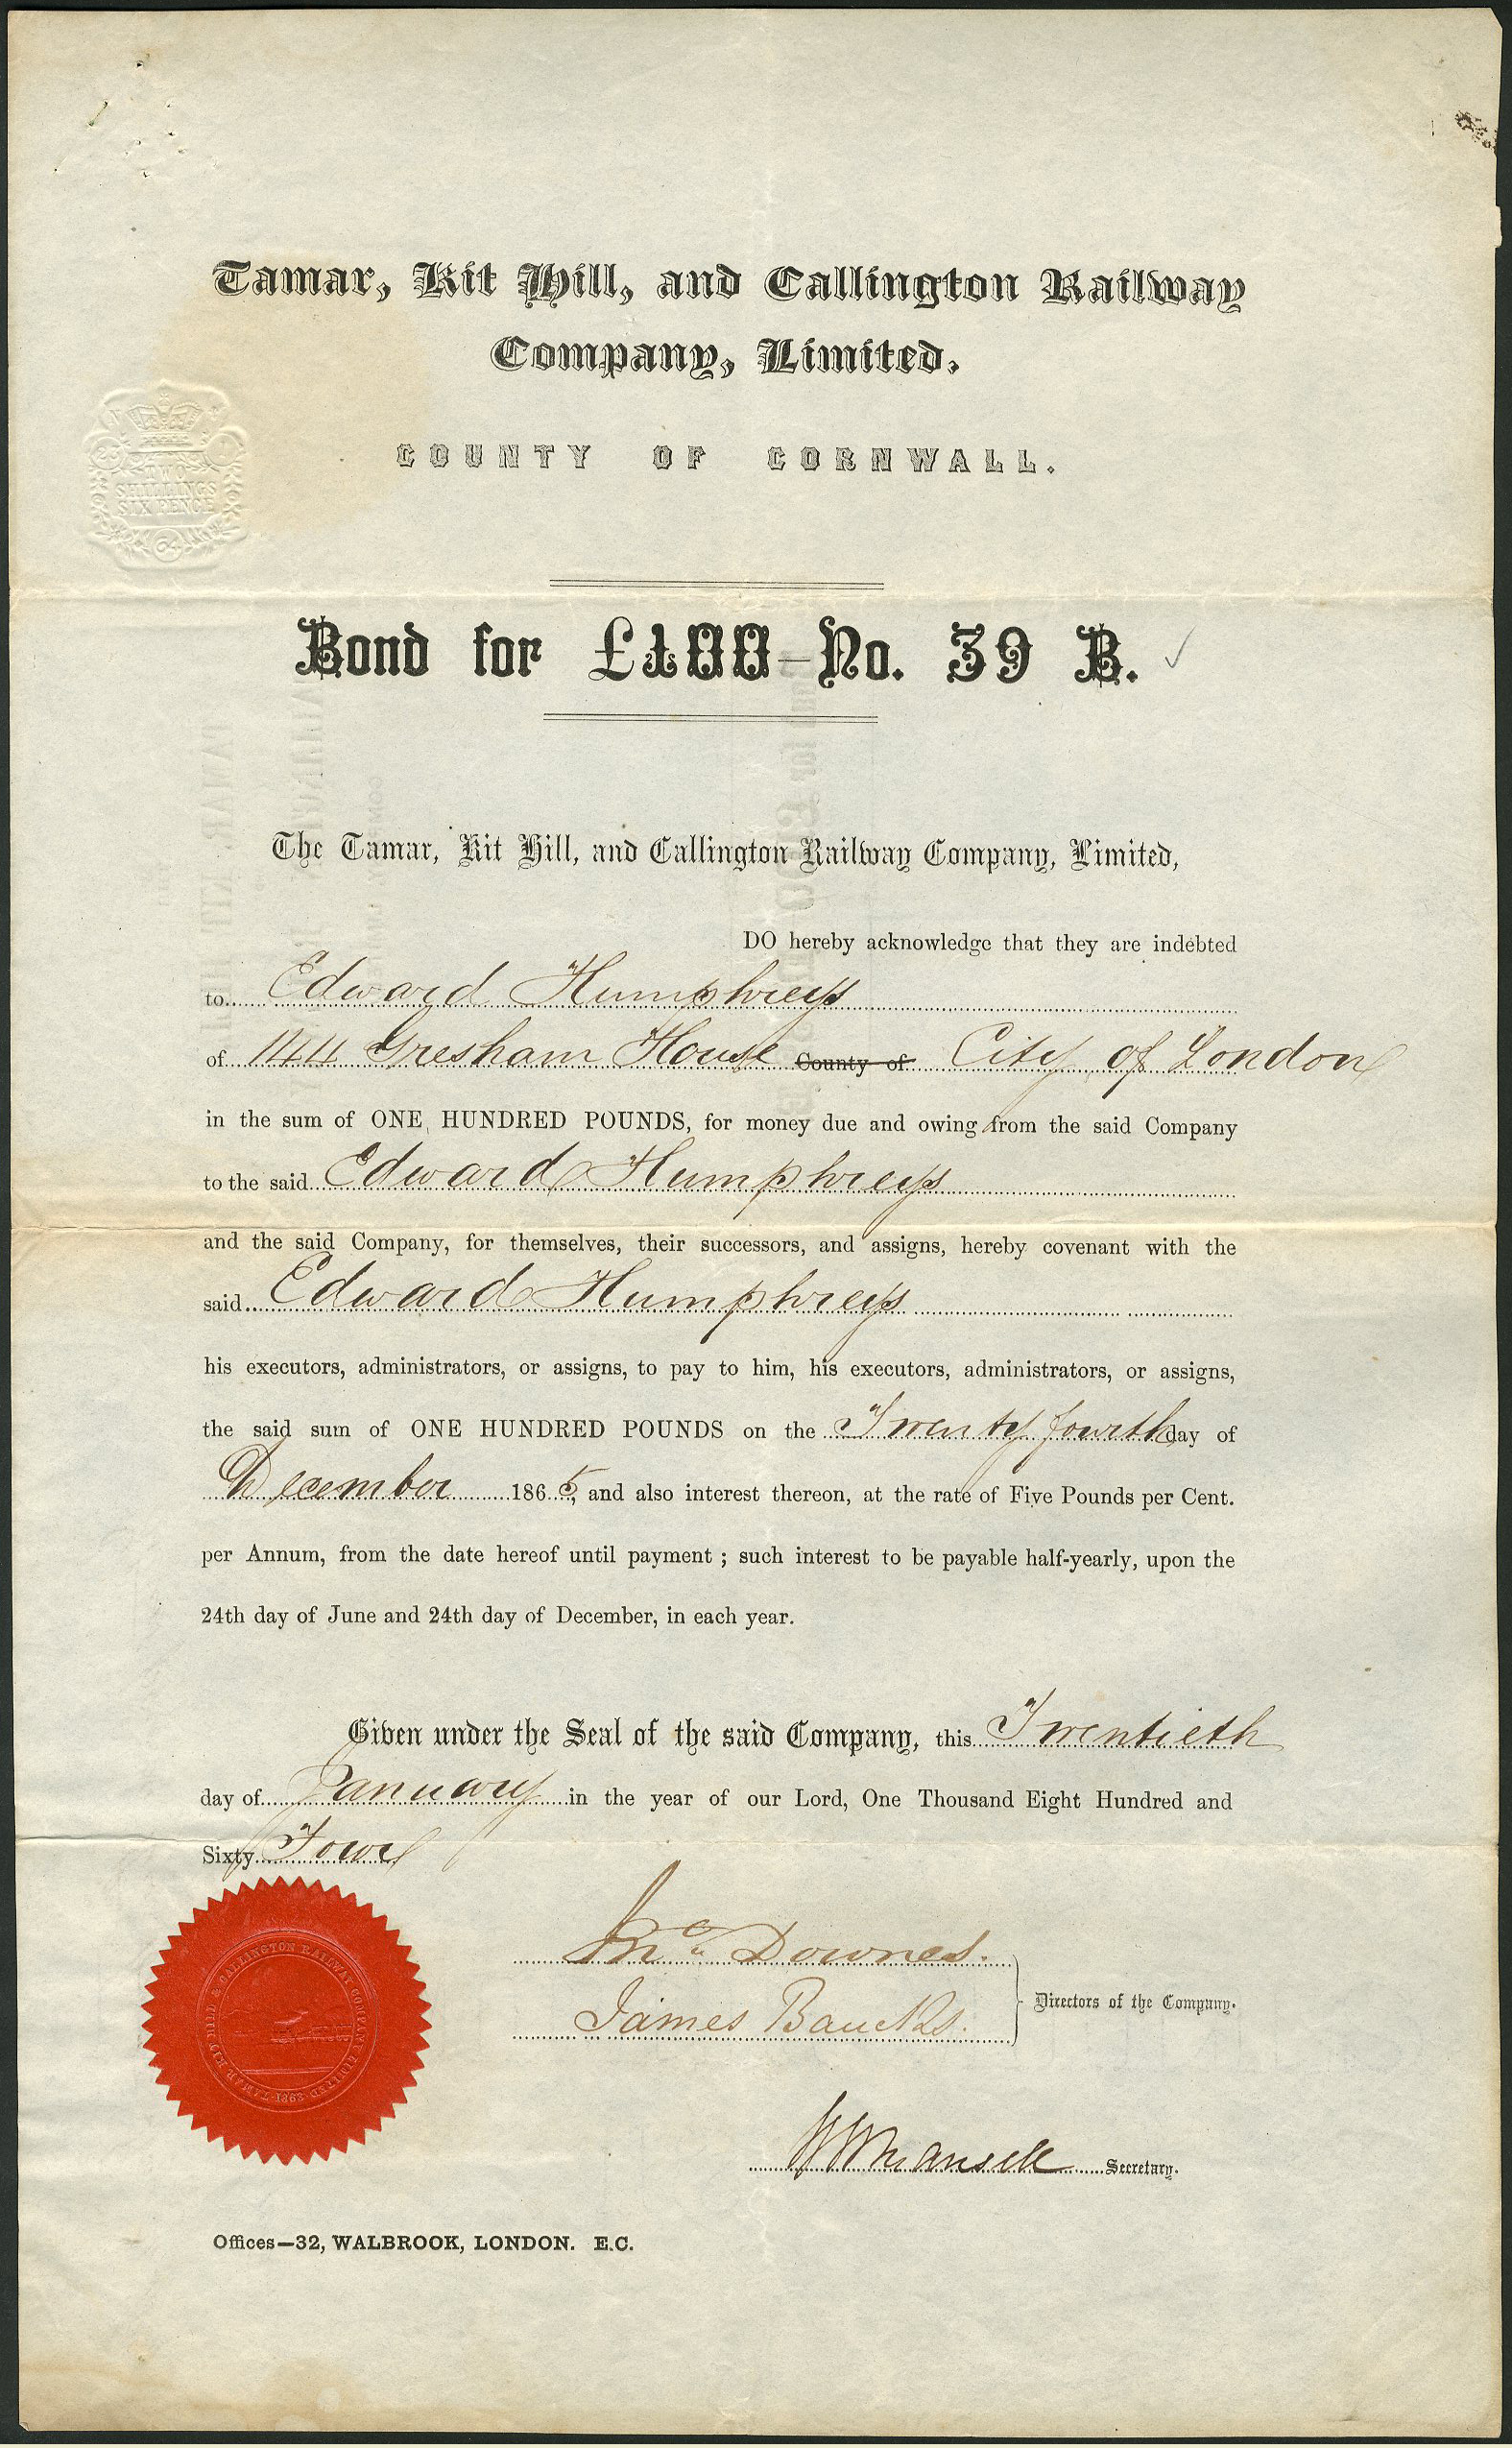 Tamar, Kit Hill, and Callington Railway
Company, Limited.
COUNTY OF CORNWALL.
TWO
SHILLINGS
SIX PENCE
Bond for £100—No. 39 B.
The Tamar, Kit Hill, and Callington Railway Company, Limited,
DO hereby acknowledge that they are indebted
to Edward Humphreys
of 144 Gresham House County of City of London
in the sum of ONE HUNDRED POUNDS, for money due and owing from the said Company
to the said Edward Humphreys
and the said Company, for themselves, their successors, and assigns, hereby covenant with the
said Edward Humphreys
his executors, administrators, or assigns, to pay to him, his executors, administrators, or assigns,
the said sum of ONE HUNDRED POUNDS on the Twenty fourth day of
December 1865, and also interest thereon, at the rate of Five Pounds per Cent.
per Annum, from the date hereof until payment ; such interest to be payable half-yearly, upon the
24th day of June and 24th day of December, in each year.
Given under the Seal of the said Company, this Twentieth
day of January in the year of our Lord, One Thousand Eight Hundred and
Sixty Four
Jno. Downes.
James Baucks.
Directors of the Company.
W Mansell Secretary.
TAMAR KIT HILL & CALLINGTON RAILWAY COMPANY LIMITED
Offices—32, WALBROOK, LONDON. E.C.